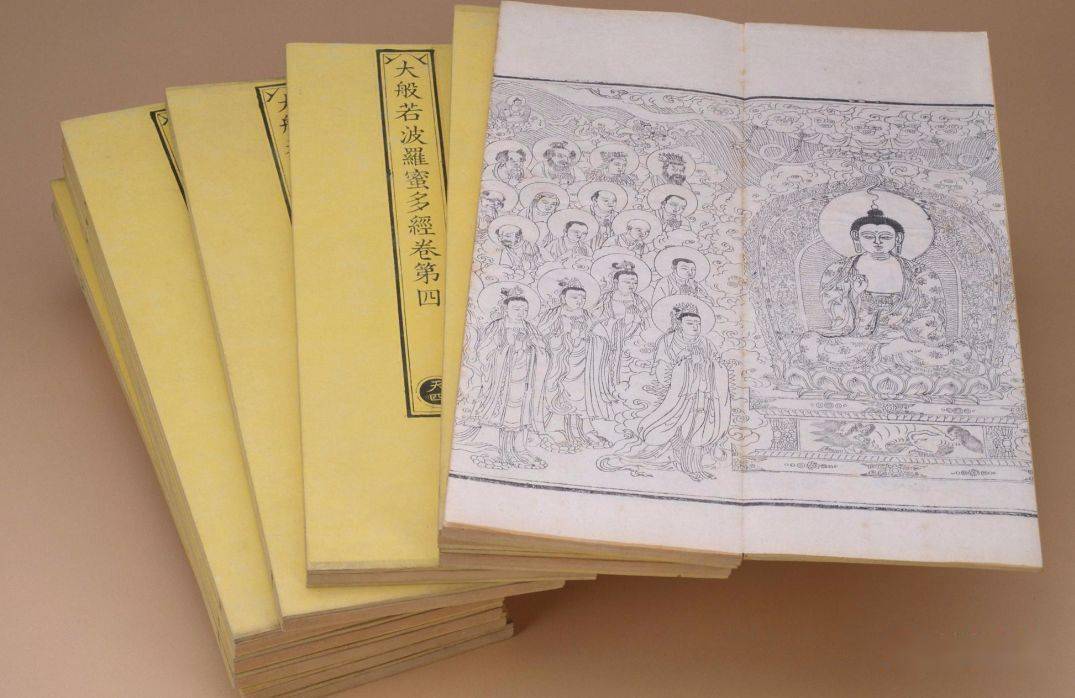 大般若波羅蜜多經卷第四
天四
大般